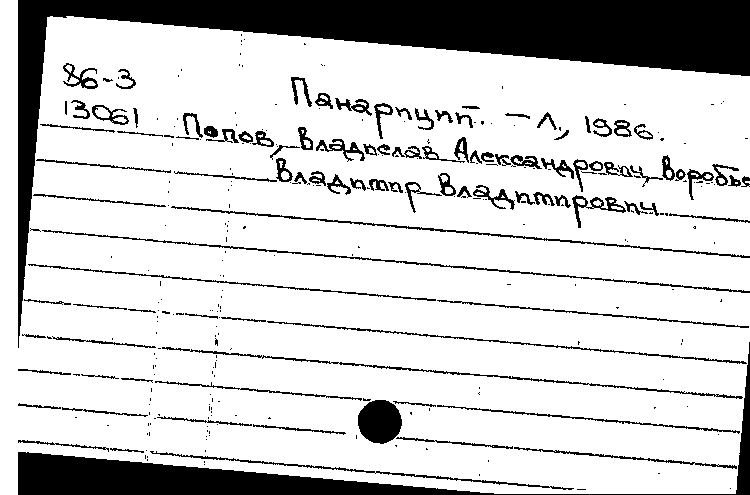 86-3
Панариций. – Л., 1986.
13061
Попов, Владислав Александрович, Воробье
Владимир Владимирович